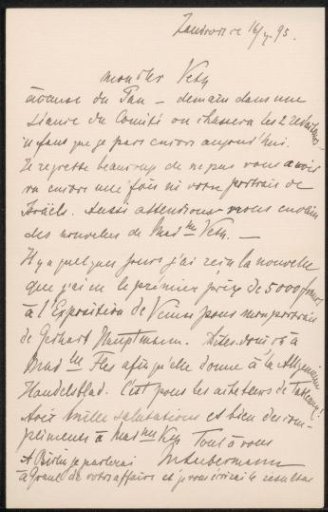 Zandvoort 16/X 95.
mon cher Veth
à cause du Pan – demain dans une
séance du Comité on chassera les 2
il faut que je pars encore aujourd'hui.
Je regrette beaucoup de ne pas vous avoir
vu encore une fois ni votre portrait de
Israëls. Aussi attendions nous en vain
des nouvelles de Mad me Veth. —
Il y a quelques jours j'ai reçu la nouvelle
que j'ai eu le premier prix de 5000 francs
à l'Exposition de Venise pour mon portrait
de Gerhart Hauptmann. Dites donc à
Mad lle afin qu'elle donne à la Allgemeen
Handelsblad. C'est pour les acheteurs de
mille salutations et bien des com-
pliments à Mad me Veth Tout à vous
A Berlin je parlerai MLiebermann
à Graul de votre affaire et vous écrirai le resultat